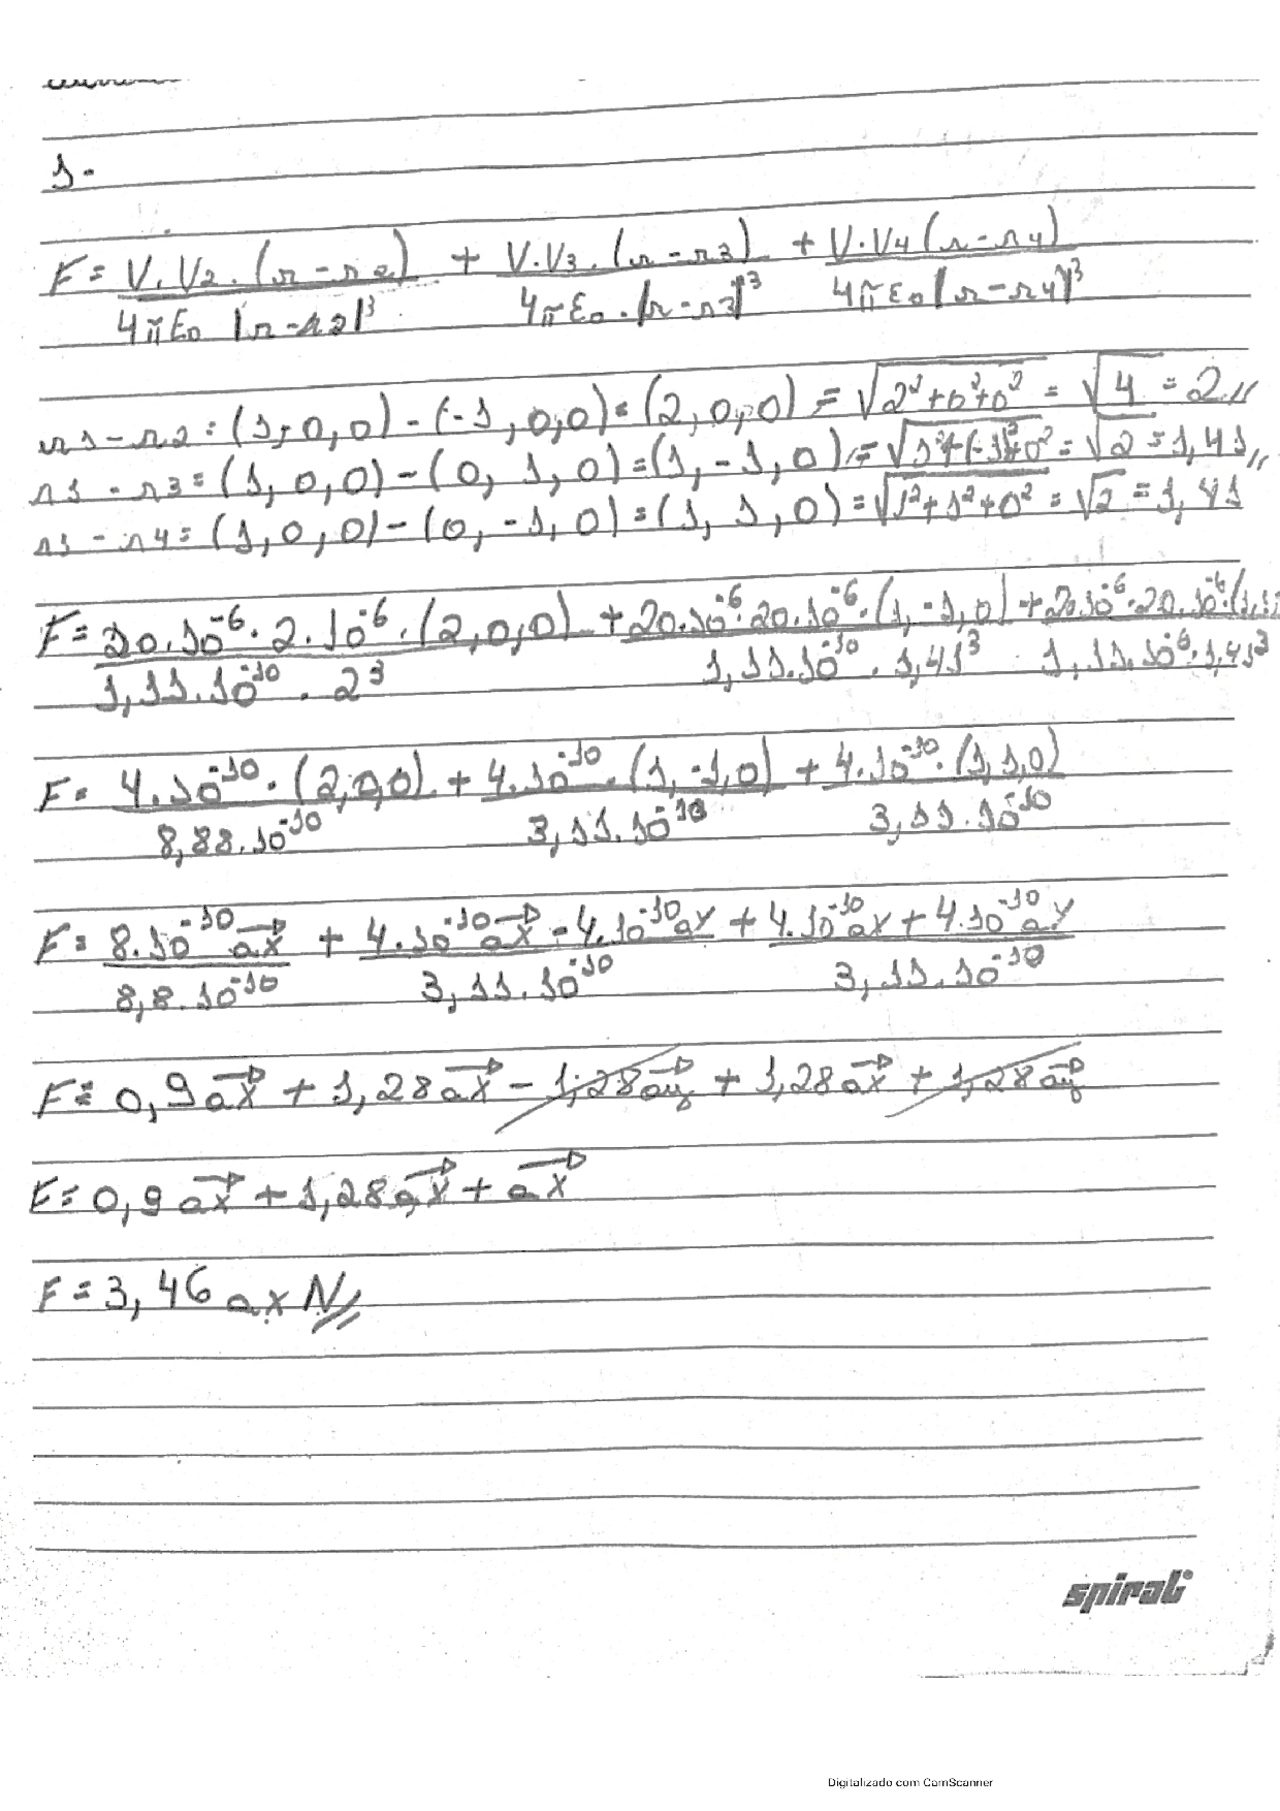 1.
F = V.V2.(r-r2) + V.V3.(r-r3) + V.V4(r-r4)
4πε0 |r-r2|³ 4πε0.|r-r3|³ 4πε0|r-r4|³
r1-r2=(1,0,0)-(-1,0,0)=(2,0,0)=√2²+0²+0² = √4 = 2//
r1-r3=(1,0,0)-(0,1,0)=(1,-1,0)=√1²+(-1)²+0² = √2 = 1,41//
r1-r4=(1,0,0)-(0,-1,0)=(1,1,0)=√1²+1²+0² = √2 = 1,41
F= 20.10⁻⁶.2.10⁻⁶.(2,0,0) + 20.10⁻⁶.20.10⁻⁶.(1,-1,0) + 20.10⁻⁶.20.10⁻⁶.(1,1,
1,11.10⁻¹⁰.2³ 1,11.10⁻¹⁰.1,41³ 1,11.10⁻⁶.1,41³
F= 4.10⁻¹⁰.(2,0,0) + 4.10⁻¹⁰.(1,-1,0) + 4.10⁻¹⁰.(1,1,0)
8,88.10⁻¹⁰ 3,11.10⁻¹⁰ 3,11.10⁻¹⁰
F= 8.10⁻¹⁰ax + 4.10⁻¹⁰ax - 4.10⁻¹⁰ay + 4.10⁻¹⁰ax + 4.10⁻¹⁰ay
8,8.10⁻¹⁰ 3,11.10⁻¹⁰ 3,11.10⁻¹⁰
F= 0,9ax + 1,28ax - 1,28ay + 1,28ax + 1,28ay
F= 0,9ax + 1,28ax + ax
F= 3,46 ax N//
spiral
Digitalizado com CamScanner